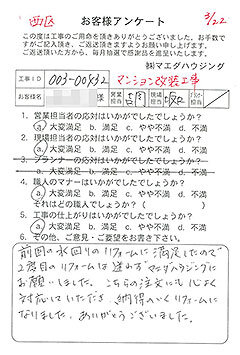 西区 お客様アンケート 3/22
この度は工事のご用命を頂きありがとうございました。お手数で
すがご記入頂き、ご返送頂きますようお願い申し上げます。
ご返送頂いた方から、毎月抽選で感謝品を進呈いたします。
㈱マエダハウジング
工事ID 003-00532 マンション改装工事
お客様名 営業担当 現場担当
1. 営業担当者の応対はいかがでしたでしょうか?
a. 大変満足 b. 満足 c. やや不満 d. 不満
2. 現場担当者の応対はいかがでしたでしょうか?
a. 大変満足 b. 満足 c. やや不満 d. 不満
3. プランナーの応対はいかがでしたでしょうか?
a. 大変満足 b. 満足 c. やや不満 d. 不満
4. 職人のマナーはいかがでしたでしょうか?
a. 大変満足 b. 満足 c. やや不満 d. 不満
それはどの職人でしょうか? ( )
5. 工事の仕上がりはいかがでしたでしょうか?
a. 大変満足 b. 満足 c. やや不満 d. 不満
6. その他、ご意見・ご要望をお書き下さい。
前回の水回りのリフォームに満足したので
2度目のリフォームは迷わずマエダハウジングに
お願いしました。こちらの注文にも心よく
対応していただき、納得のいくリフォームに
なりました。ありがとうございました。